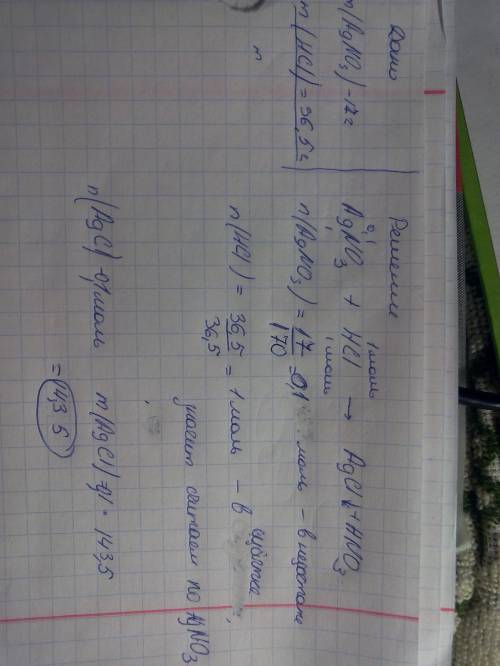 Дано
m(AgNO₃) - 17 г
m(HCl) = 36,5 г
n
Решение
0,1 1 моль
AgNO₃ + HCl → AgCl↓ + HNO₃
1 1 моль
n(AgNO₃) = 17/170 = 0,1 моль - в недостатке
n(HCl) = 36,5/36,5 = 1 моль - в избытке,
значит считаем по AgNO₃
n(AgCl) - 0,1 моль m(AgCl) = 0,1 · 143,5
= 14,35